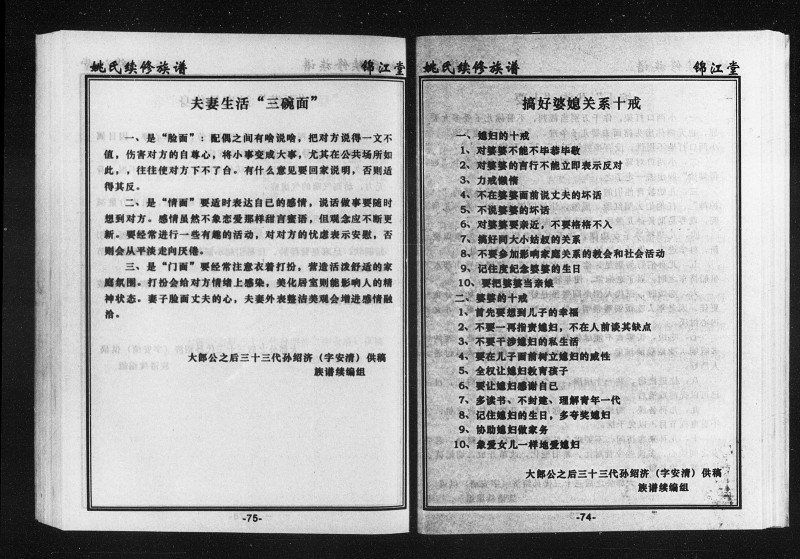 姚氏续修族谱
锦江堂
夫妻生活“三碗面”
一、是“脸面”：配偶之间有啥说啥，把对方说得一文不
值，伤害对方的自尊心，将小事变成大事，尤其在公共场所如
此，，往往使对方下不了台。有什么意见要回家说明，否则适
得其反。
二、是“情面”要适时表达自己的感情，说话做事要随时
想到对方。感情虽然不象恋爱那样甜言蜜语，但观念应不断更
新。要经常进行一些有趣的活动，对对方的忧虑表示安慰，否
则会从平淡走向厌倦。
三、是“门面”要经常注意衣着打扮，营造活泼舒适的家
庭氛围。打扮会给对方情绪上感染，美化居室则能影响人的精
神状态。妻子脸面丈夫的心，夫妻外表整洁美观会增进感情融
洽。
大郎公之后三十三代孙绍济（字安清）供稿
族谱续编组
-75-
姚氏续修族谱
锦江堂
搞好婆媳关系十戒
一、媳妇的十戒
1、对婆婆不能不毕恭毕敬
2、对婆婆的言行不能立即表示反对
3、力戒懒惰
4、不在婆婆面前说丈夫的坏话
5、不说婆婆的坏话
6、对婆婆要亲近，不要格格不入
7、搞好同大小姑叔的关系
8、不要参加影响家庭关系的教会和社会活动
9、记住度纪念婆婆的生日
10、要把婆婆当亲娘
二、婆婆的十戒
1、首先要想到儿子的幸福
2、不要一再指责媳妇，不在人前谈其缺点
3、不要干涉媳妇的私生活
4、要在儿子面前树立媳妇的威性
5、全权让媳妇教育孩子
6、要让媳妇感谢自己
7、多读书、不封建、理解青年一代
8、记住媳妇的生日，多夸奖媳妇
9、协助媳妇做家务
10、象爱女儿一样地爱媳妇
大郎公之后三十三代孙绍济（字安清）供稿
族谱续编组
-74-